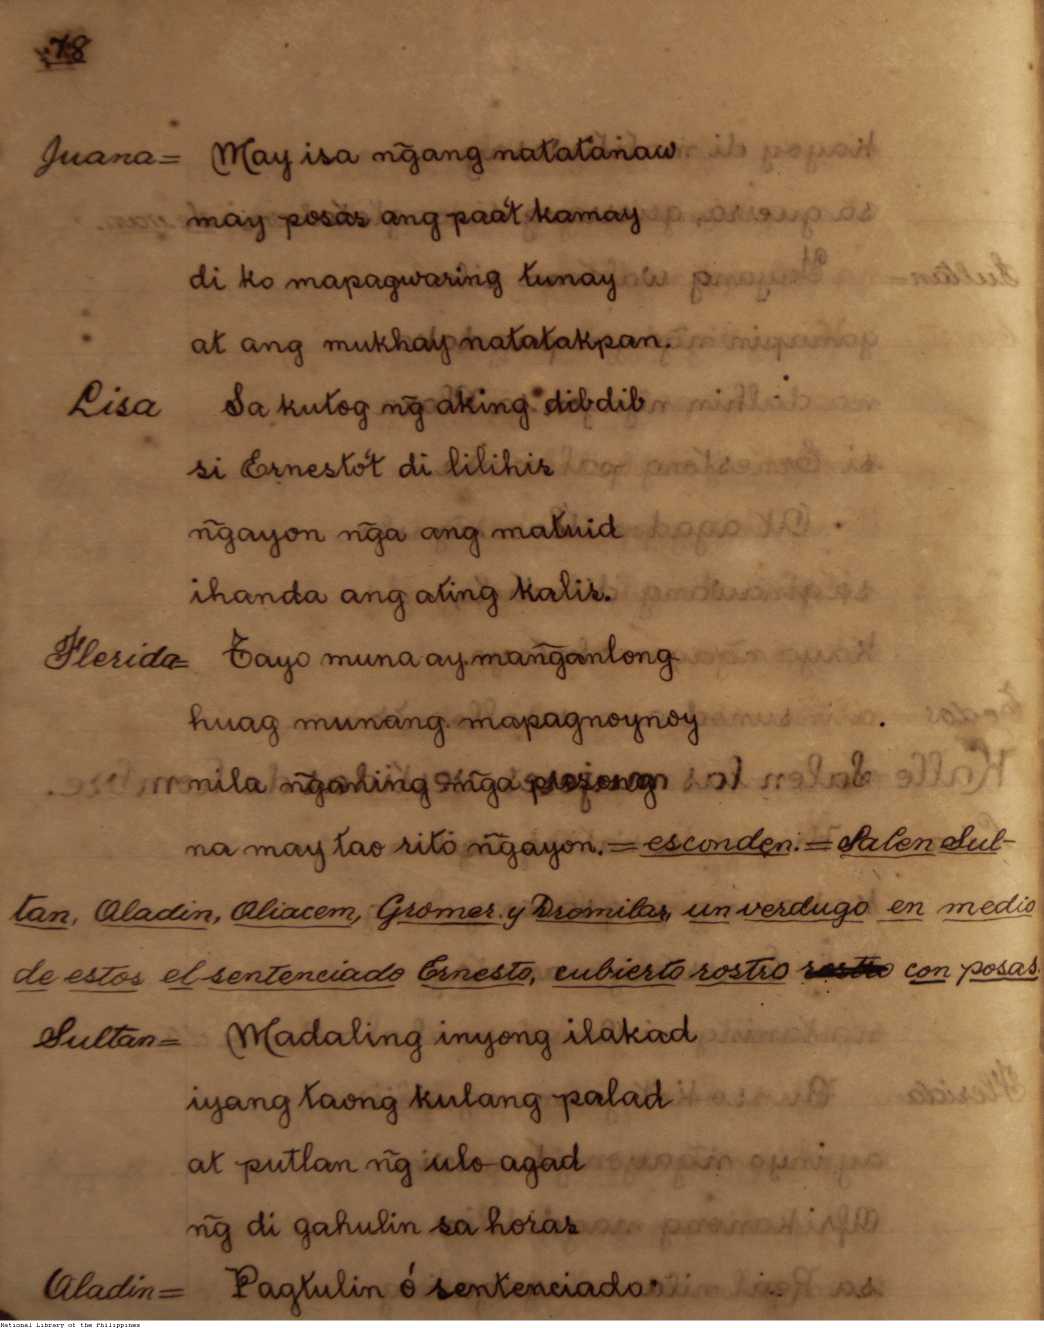 78
Juana= May isa n͠gang natatanaw
may posas ang paa't kamay
di ko mapagwaring tunay
at ang mukhay natatakpan.
Lisa Sa kutog n͠g aking dibdib
si Ernesto't di lilihis
n͠gayon n͠ga ang matuid
ihanda ang ating kalis.
Flerida= Tayo muna ay man͠ganlong
huag munang mapagnoynoy
nila n͠ganing m͠ga
na may tao rito n͠gayon.=esconden.=Salen Sul-
tan, Aladin, Aliacem, Gromer y Dromilas, un verdugo en medio
de estos el sentenciado Ernesto, cubierto rostro con posas.
Sultan= Madaling inyong ilakad
iyang taong kulang palad
at putlan n͠g ulo agad
n͠g di gahulin sa horas
Aladin= Pagtulin ó sentenciado
National Library of the Philippines